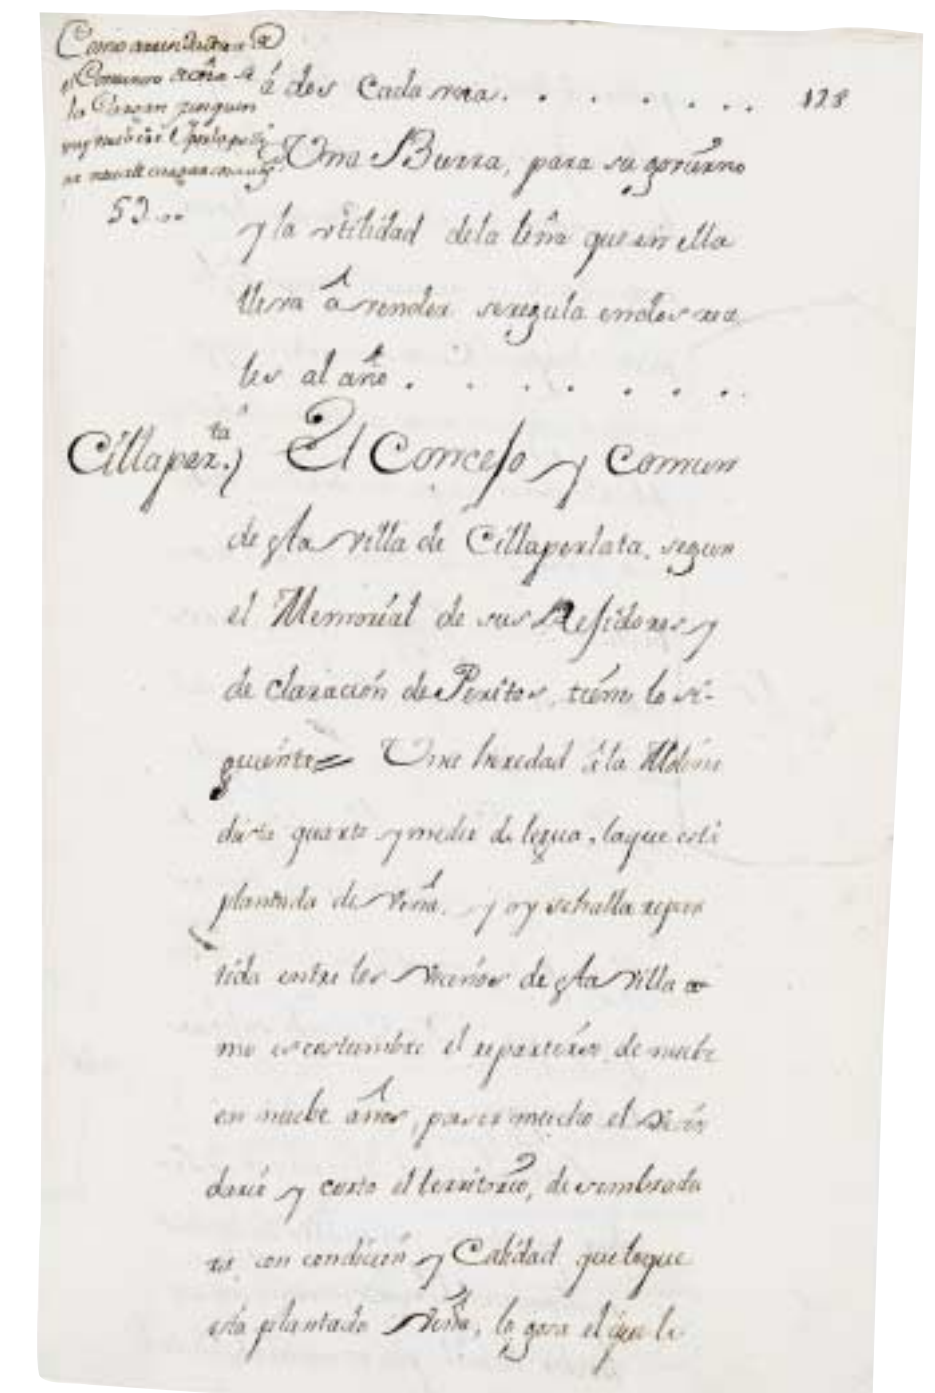 á dos cada una . . . . . . . 128
Una Burra, para su govierno
y la vtilidad dela leña que en ella
lleva â vender se regula en dos rea
les al año . . . . . . .
53
Cillaper.ta) El Concejo y Comun
de esta villa de Cillaperlata, segun
el Memorial de sus Rejidores y
de claracion de Peritos, tiene lo si-
guiente = Una heredad â la Molina
dista quarto y medio de legua, la que está
plantada de viña, y oy se halla repar
tida entre los vecinos de esta villa co
mo es costumbre el repartirse de nuebe
en nuebe años, por ser mucho el vecin
dario y corto el territorio, de sembradu
ra con condicion y Calidad que lo que
está plantado viña, lo goza el que le